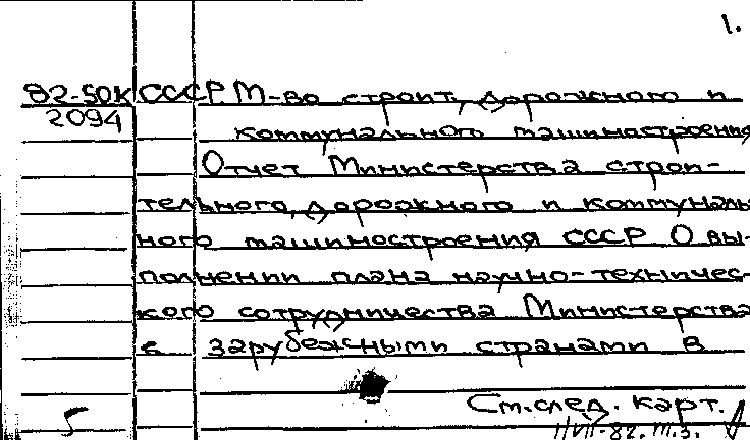 1.
82-50К СССР М-во строит., дорожного и
2094 коммунального машиностроения
Отчет Министерства строи-
тельного, дорожного и коммуналь-
ного машиностроения СССР О вы-
полнении плана научно-техничес-
кого сотрудничества Министерства
с зарубежными странами в
См.след. карт.
5 1/VII-82.